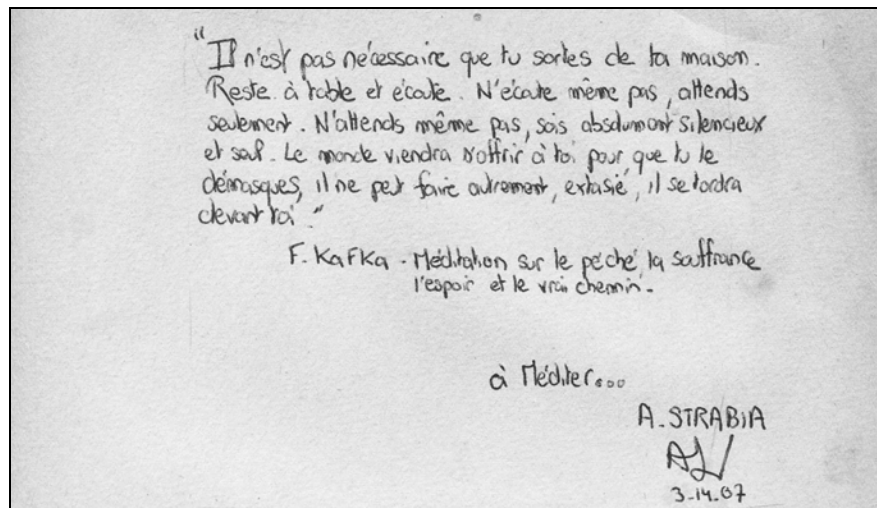 "Il n'est pas nécessaire que tu sortes de ta maison.
Reste à table et écoute. N'écoute même pas, attends
seulement. N'attends même pas, sois absolument silencieux
et seul. Le monde viendra s'offrir à toi pour que tu le
démasques, il ne peut faire autrement, extasié, il se tordra
devant toi."
F. KaFKa - Méditation sur le péché, la souffrance
l'espoir et le vrai chemin.
à Méditer...
A. STRABiA
3-14-07